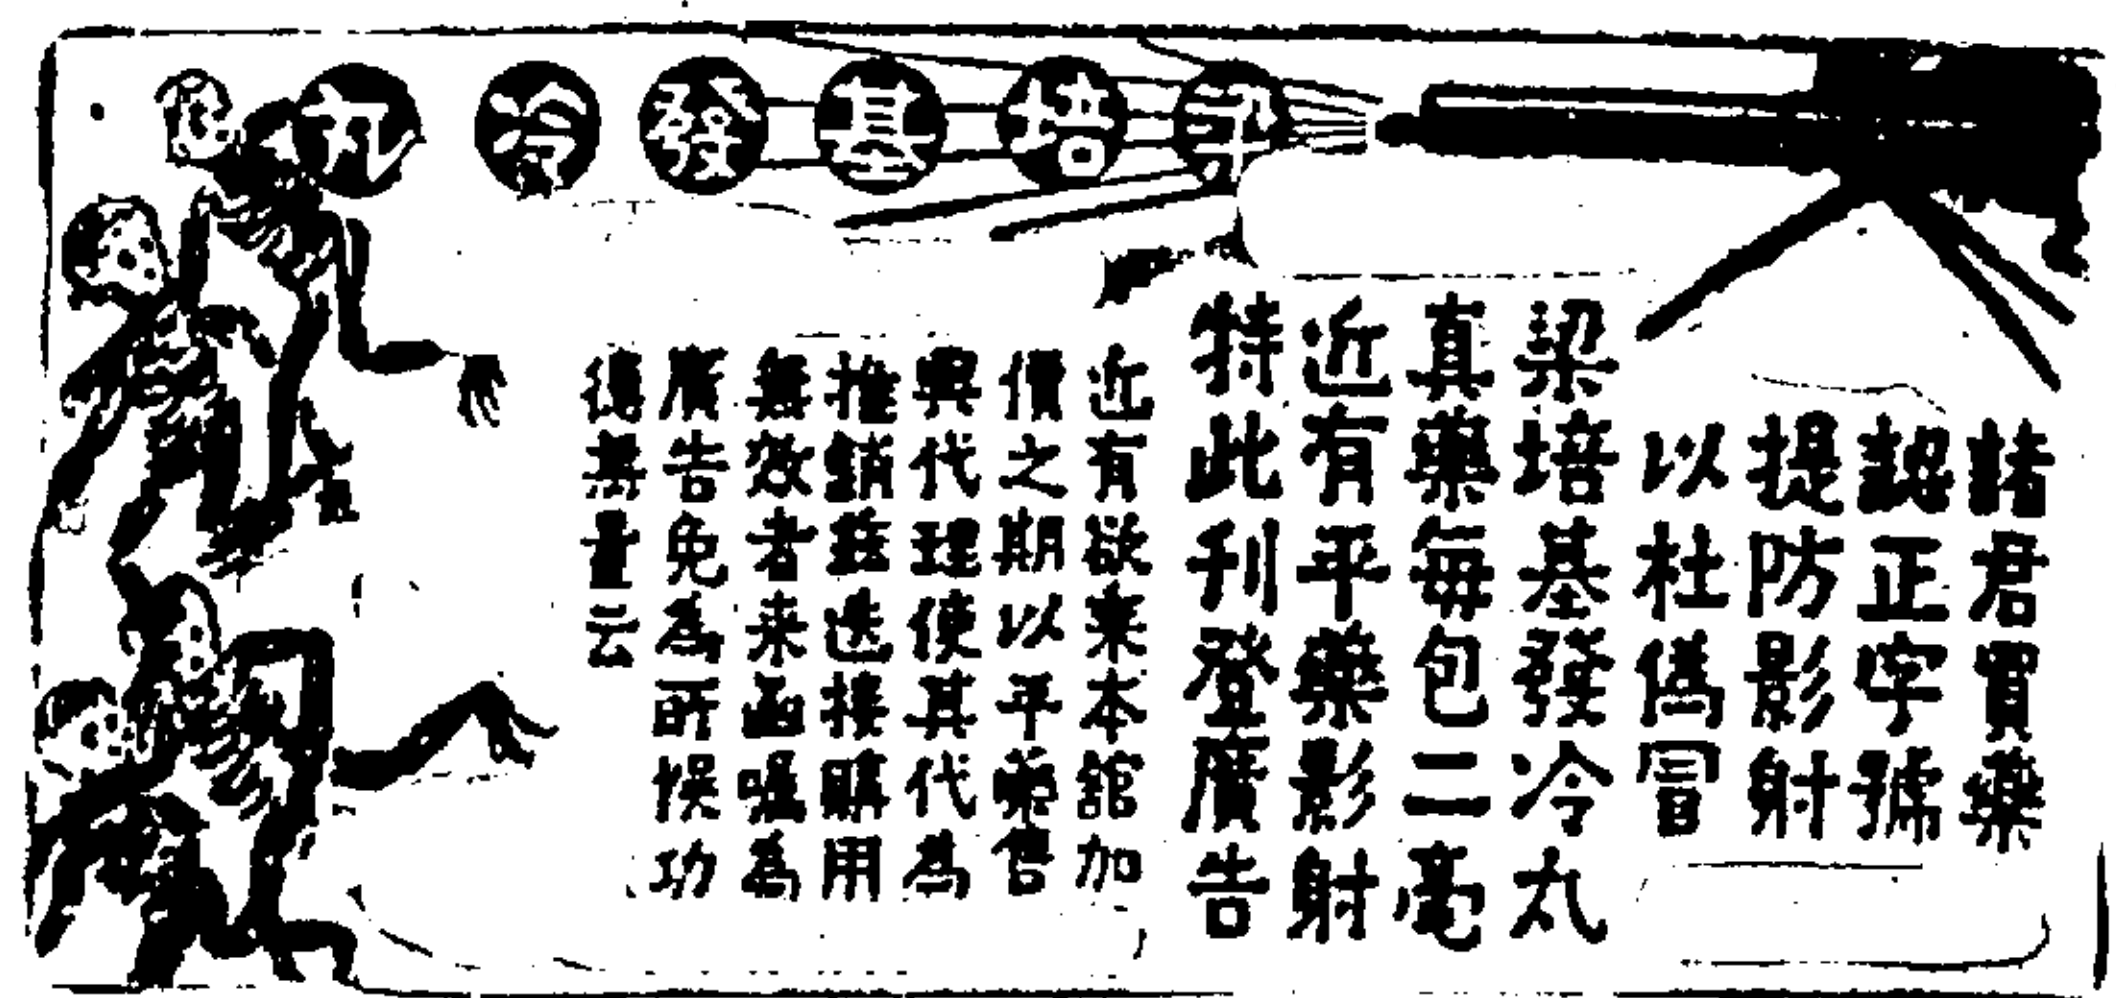 梁培基發冷丸
諸君買藥
認正字號
提防影射
以杜僞冒
梁培基發冷丸
真藥每包二毫
近有平藥影射
特此刊登廣告
近有欲棄本舘加
價之期以平藥售
與代理使其代為
推銷茲迭接購用
無效者来函囑為
廣告免為所悞功
德無量云